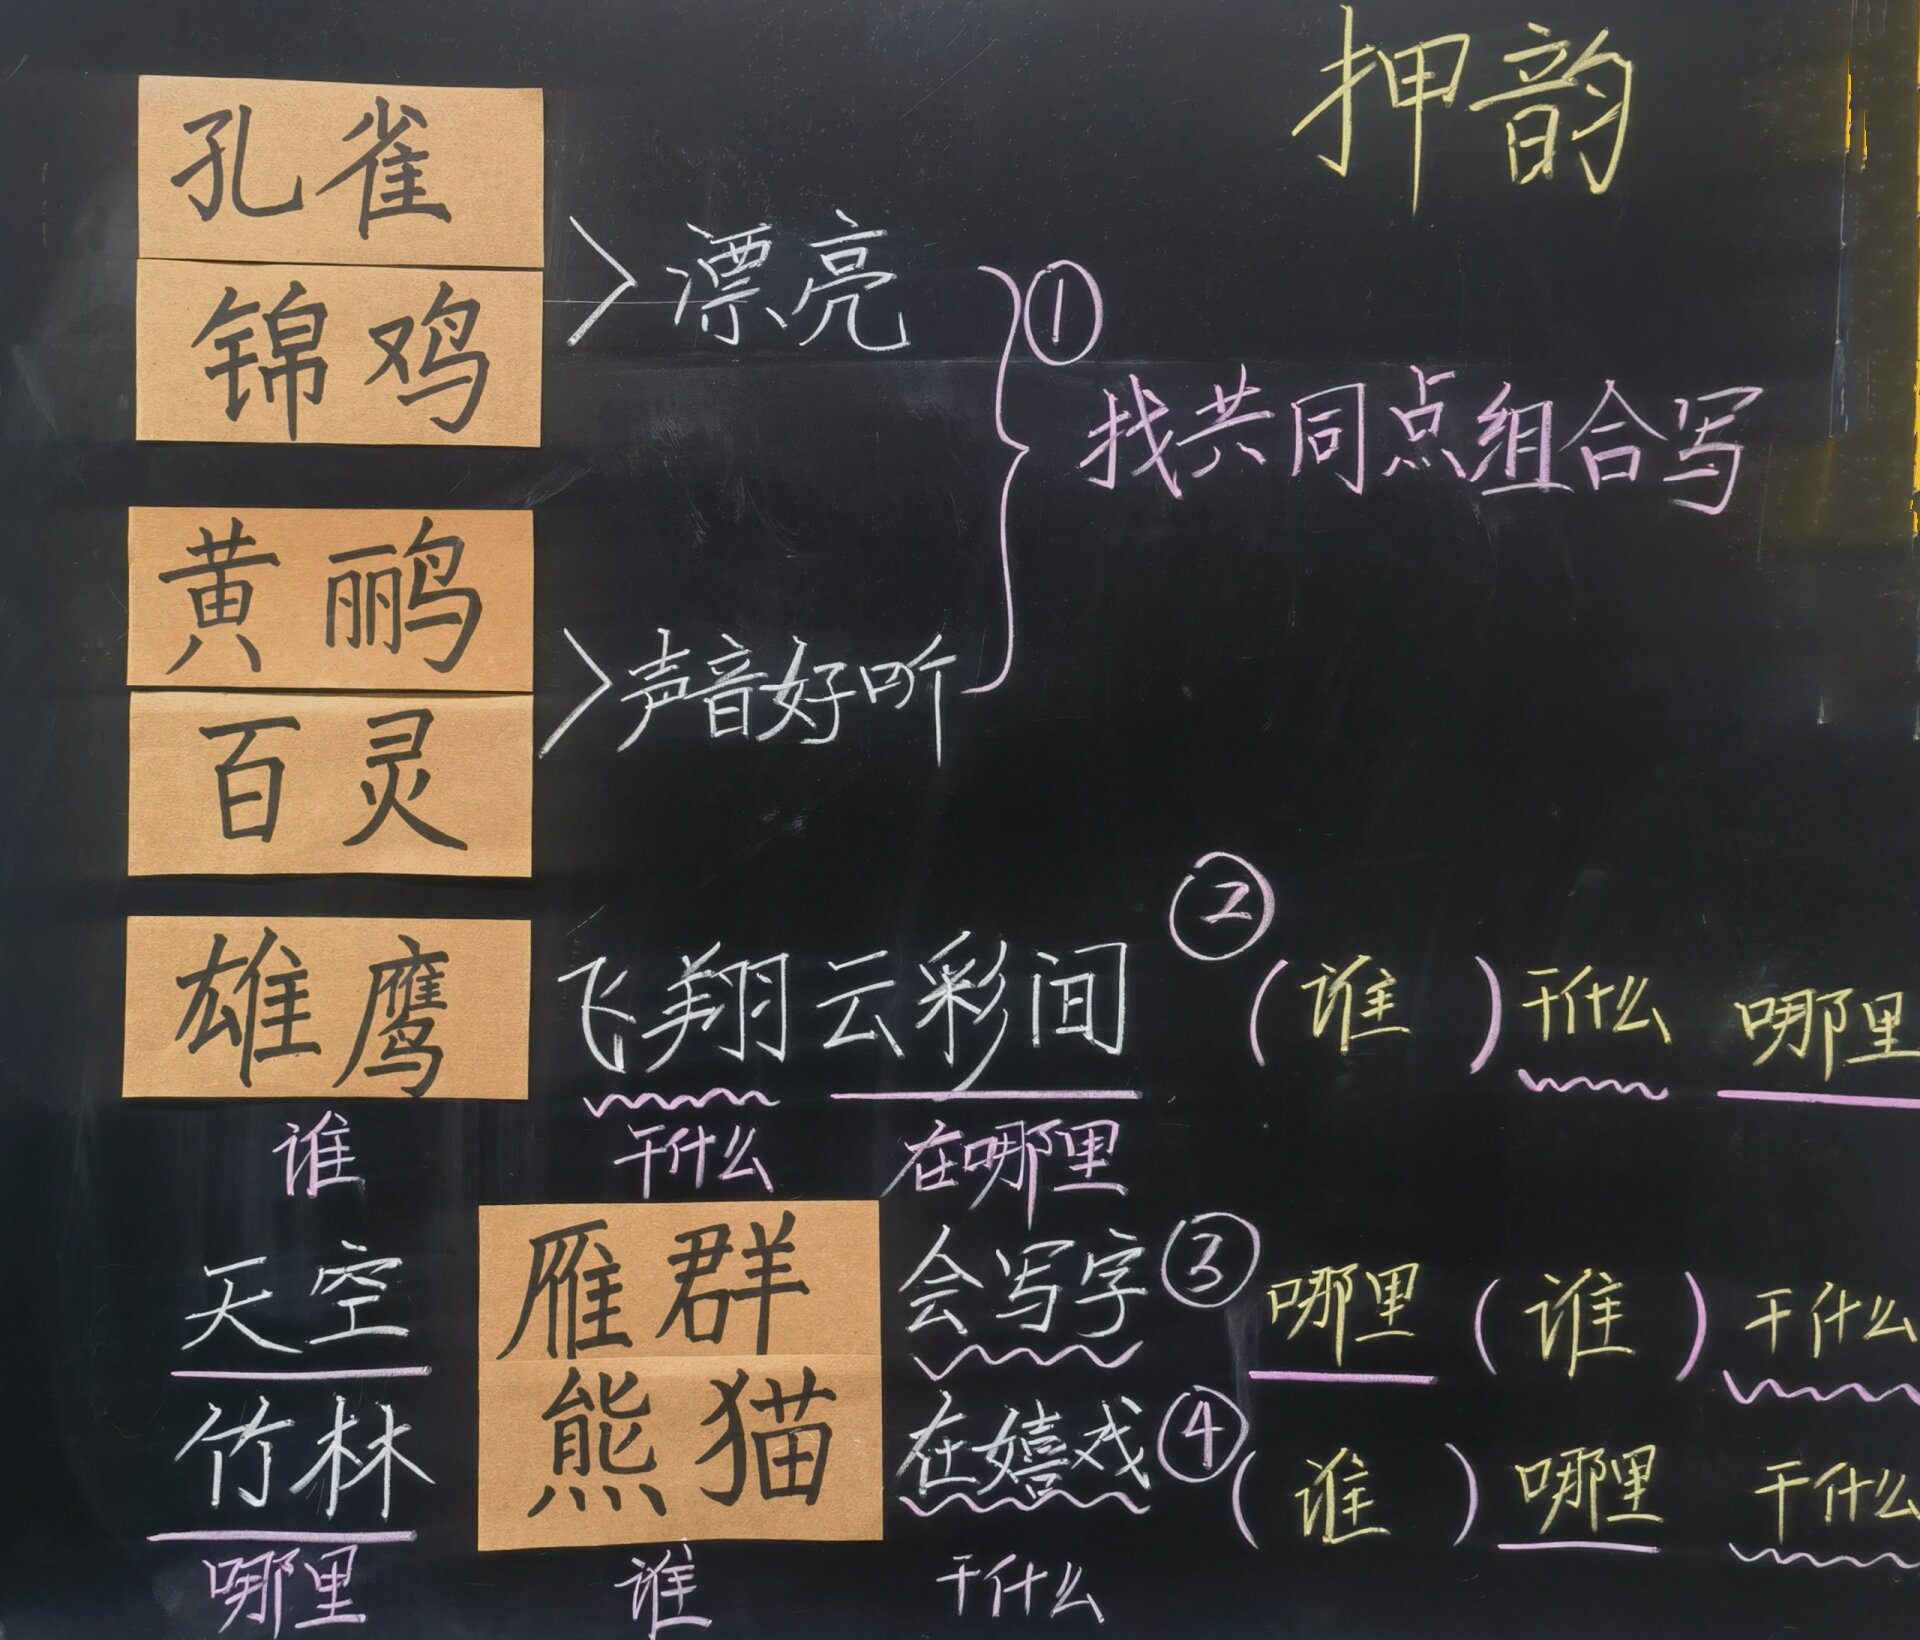 押韵
孔雀
锦鸡
漂亮
①
找共同点组合写
黄鹂
百灵
声音好听
雄鹰 飞翔云彩间 ② (谁) 干什么 哪里
谁 干什么 在哪里
天空 雁群 会写字 ③ 哪里 (谁) 干什么
竹林 熊猫 在嬉戏 ④ (谁) 哪里 干什么
哪里 谁 干什么